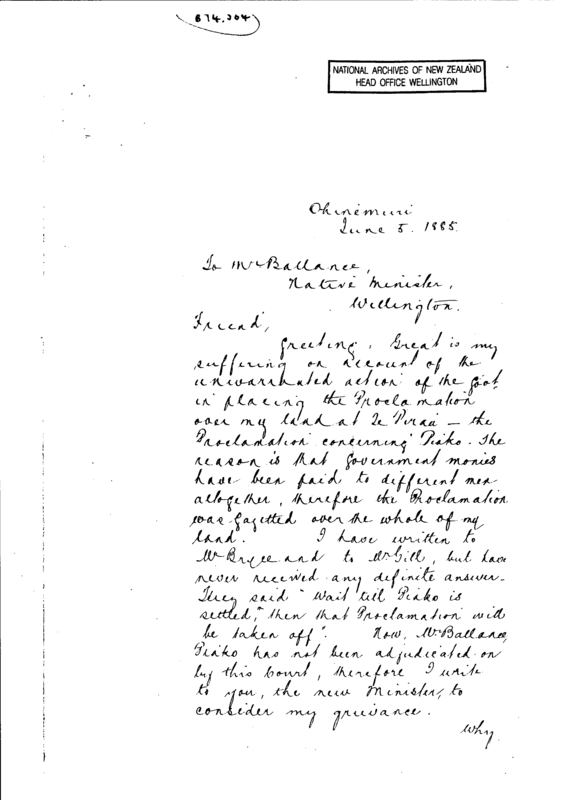 874,304
NATIONAL ARCHIVES OF NEW ZEALAND
HEAD OFFICE WELLINGTON
Ohinemuri
June 5. 1885.
To Mr Ballance,
Native Minister,
Wellington.
Friend,
Greeting, Great is my
suffering on account of the
unwarranted action of the Govt
in placing the Proclamation
over my land at Te — the
Proclamation concerning Piako. The
reason is that Government monies
have been paid to different men
altogether, therefore the Proclamation
was gazetted over the whole of my
land. I have written to
Mr Bryce and to Mr Gill, but have
never received any definite answer.
They said "Wait till Piako is
settled," then that Proclamation will
be taken off". Now, Mr Ballance,
Piako has not been adjudicated on
by this Court, therefore I write
to you, the new Minister, to
consider my grievance.
Why